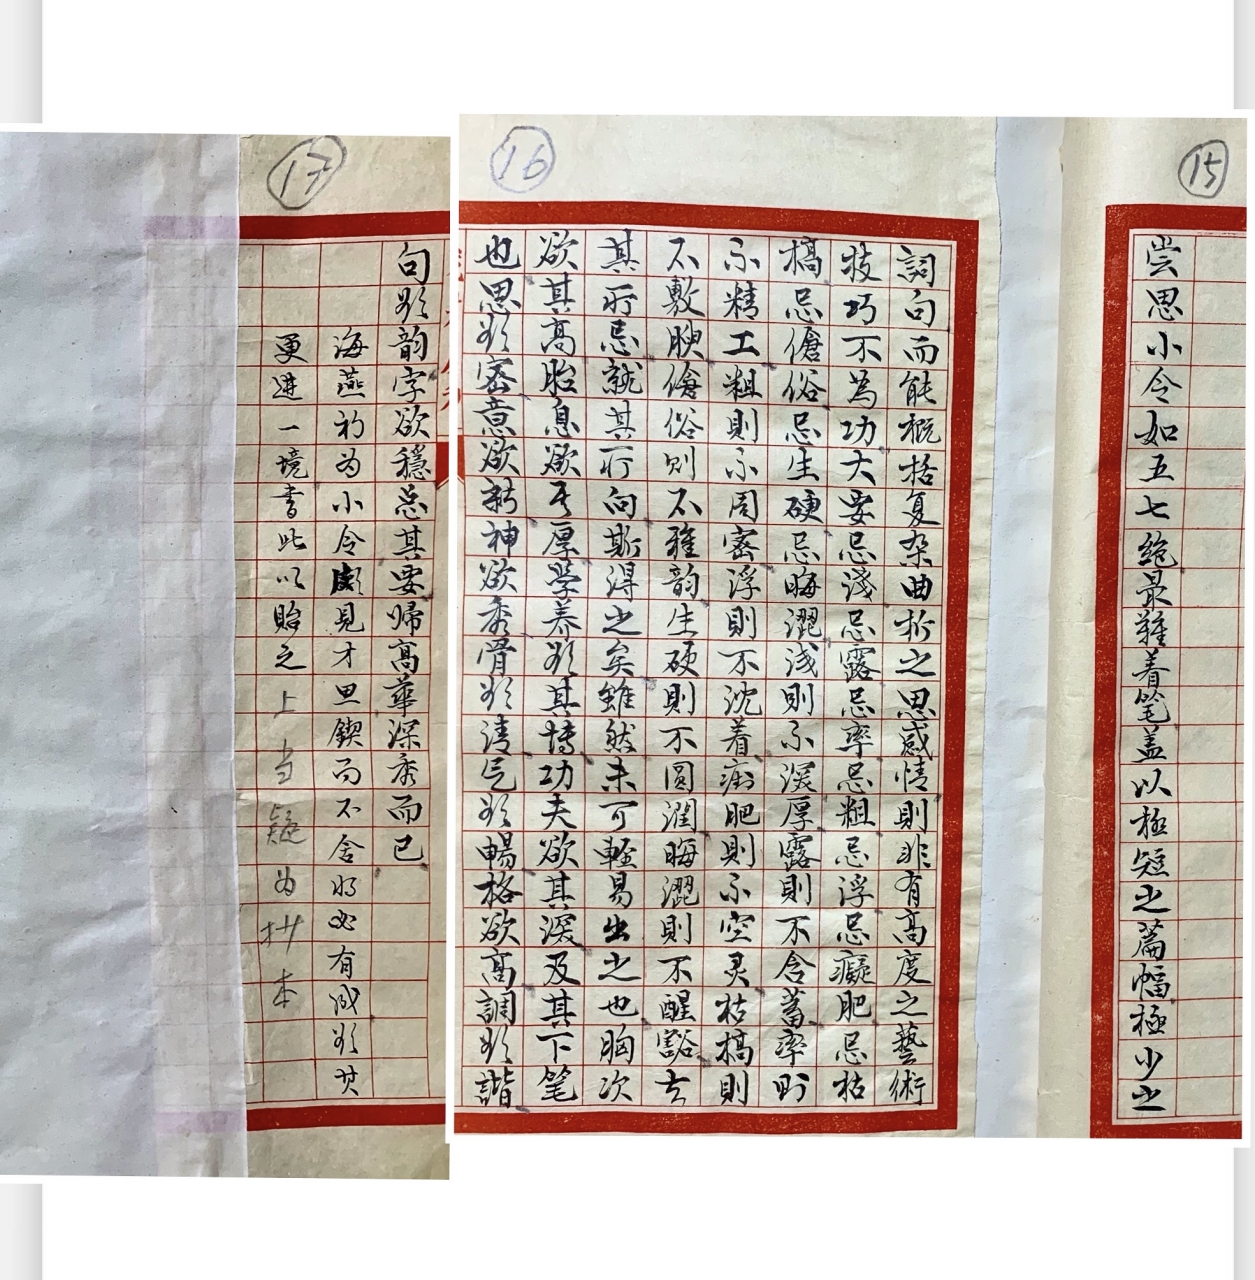 15
尝思小令如五七絶最難着笔盖以極短之篇幅極少之
16
詞句而能概括复杂曲折之思感情則非有高度之藝術
技巧不為功大要忌淺忌露忌率忌粗忌浮忌癡肥忌枯
槁忌傖俗忌生硬忌晦澀浅則不深厚露則不含蓄率則
不精工粗則不周密浮則不沈着痴肥則不空灵枯槁則
不敷腴傖俗则不雅韵生硬則不圓潤晦澀則不醒豁去
其所忌就其所向斯得之矣雖然未可軽易出之也胸次
欲其高胎息欲其厚學养欲其博功夫欲其深及其下笔
也思欲密意欲新神欲秀骨欲清气欲暢格欲高調欲諧
17
句欲韵字欲穩总其要帰高華深秀而已
海燕初为小令颇见才思鍥而不舍将必有成欲其
更进一境書此以貽之
上当疑为抄本